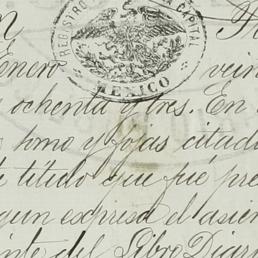 REGISTRO CAPITAL
MEXICO
Enero vein
y ochenta y tres. En
tomo y fojas citada
título que fué pre
gun espresa el asien
inte del Libro Diari